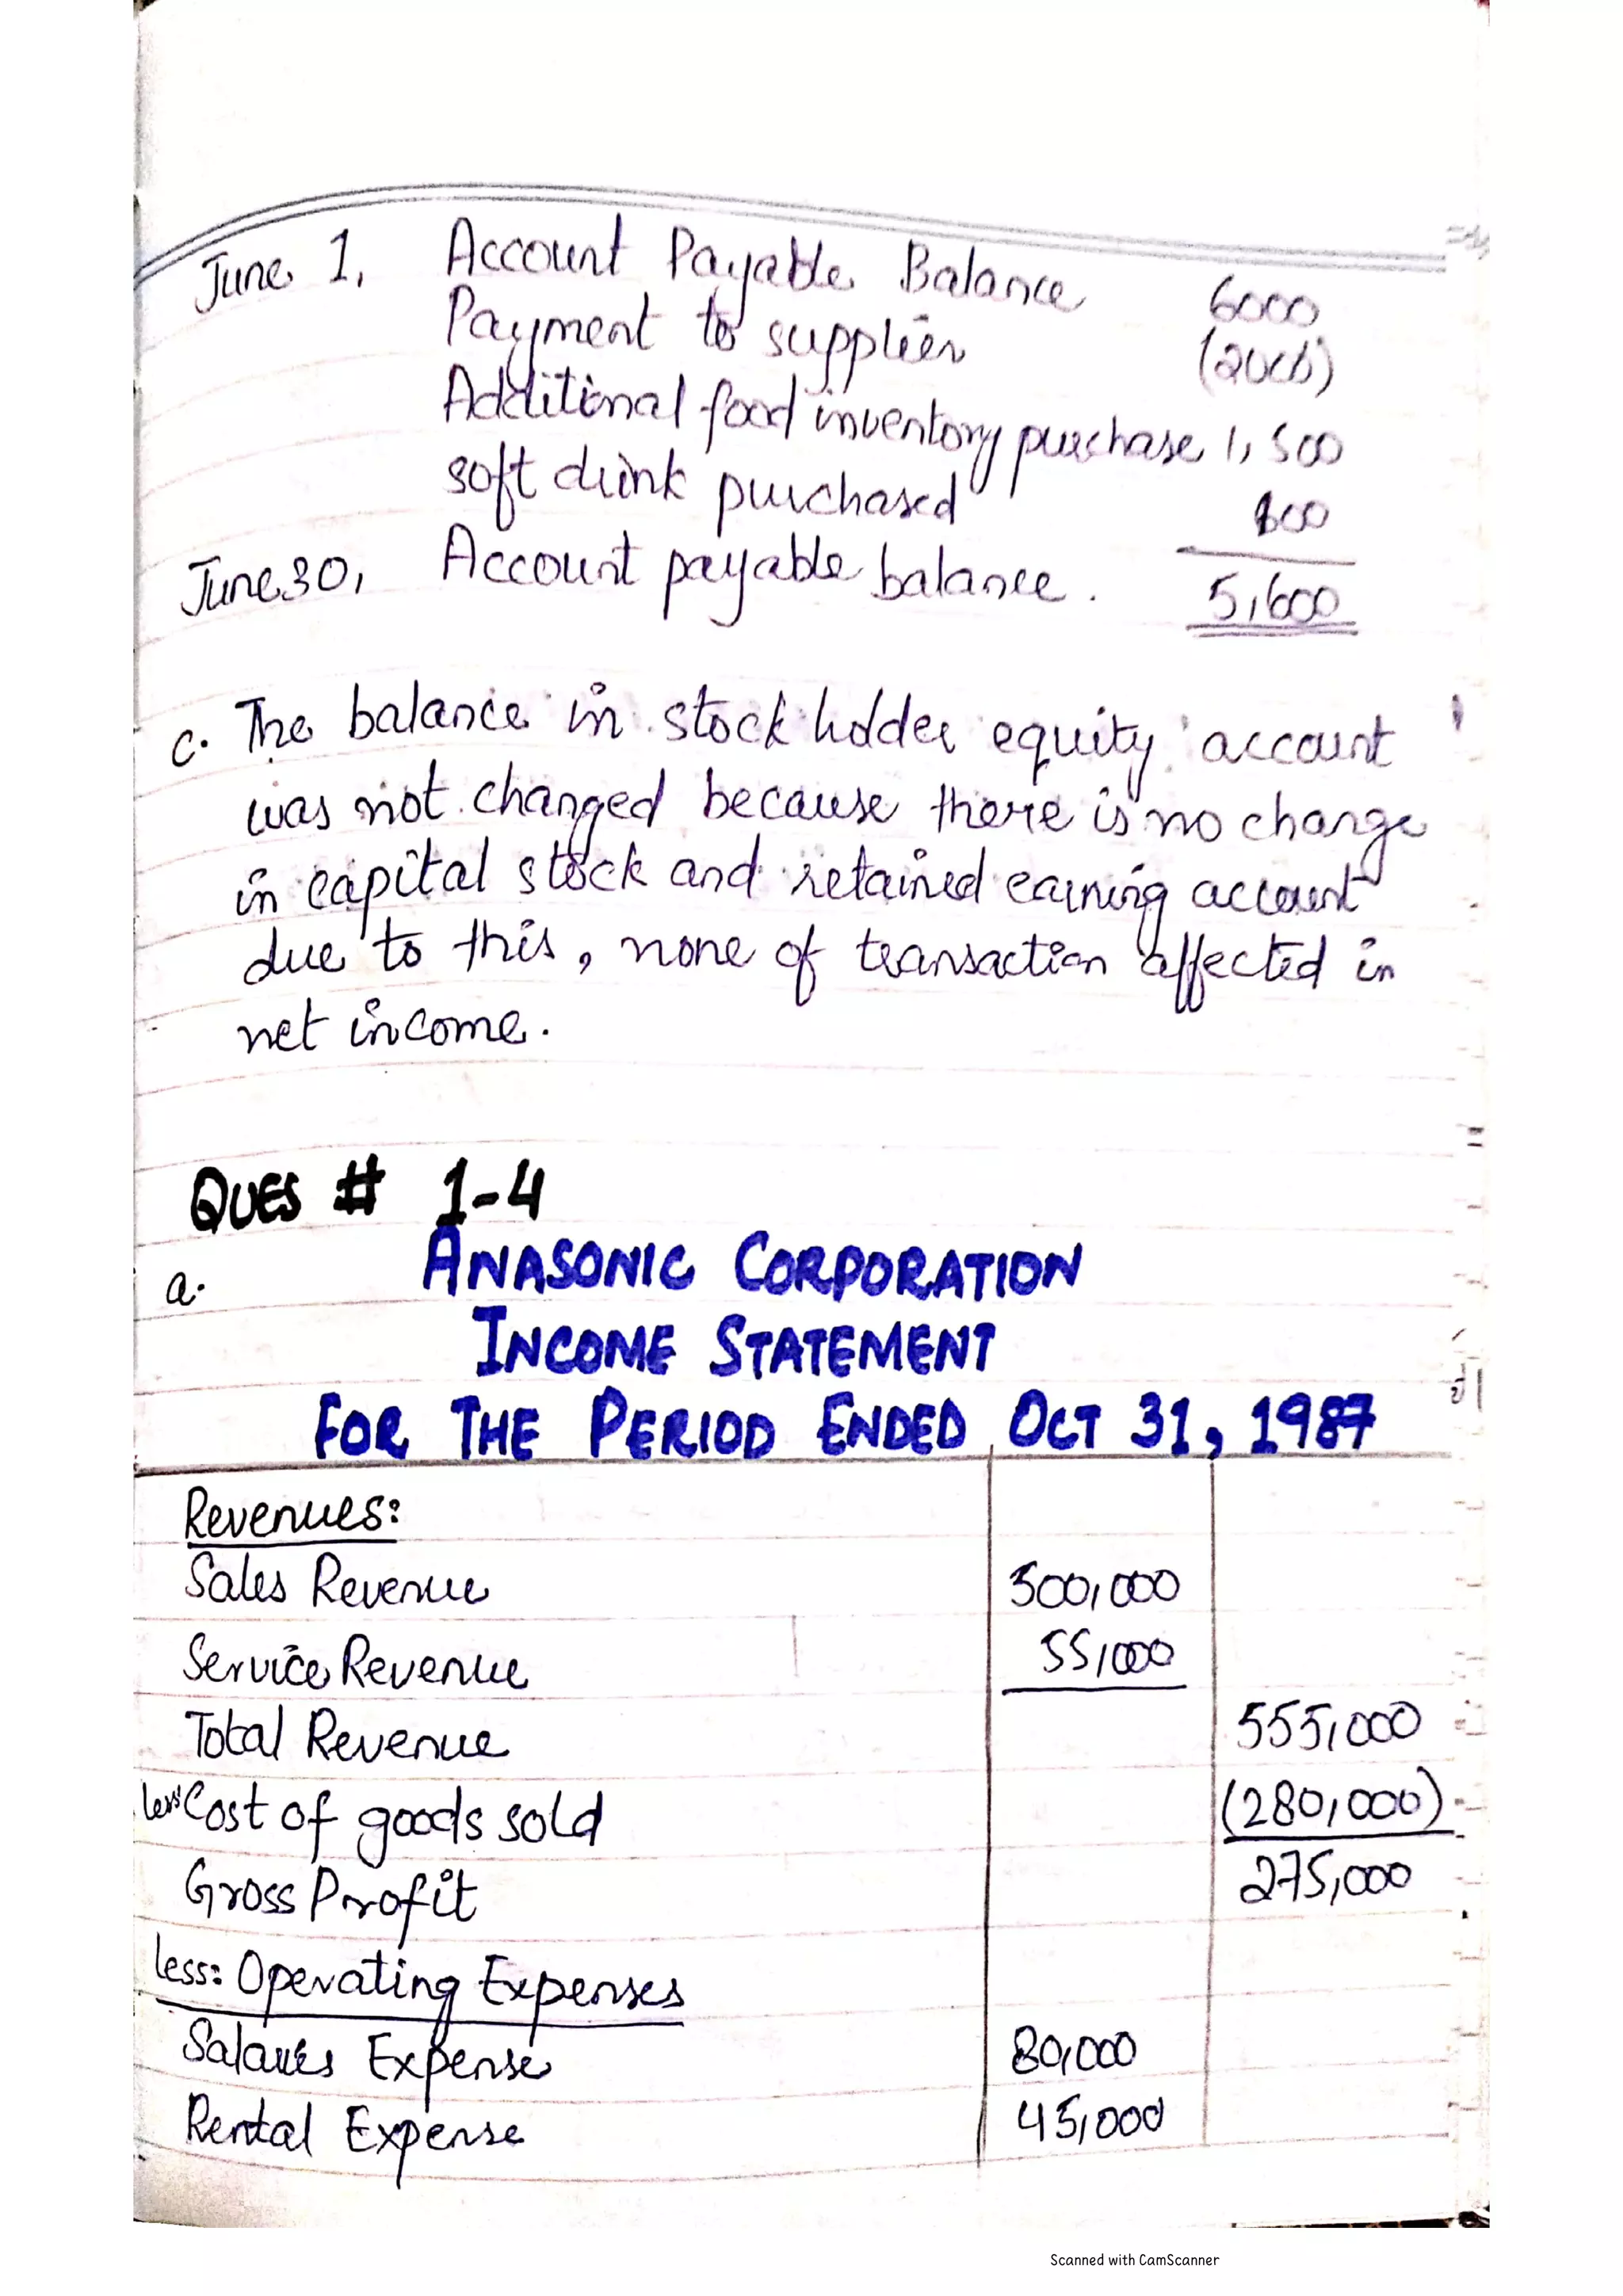 June 1, Account Payable Balance 6000
Payment to supplier (2000)
Additional food inventory purchase 1,500
soft drink purchased 100
June 30, Account payable balance. 5,600
c. The balance in stock holder equity account
was not changed because there is no change
in capital stock and retained earning account
due to this, none of transaction affected in
net income.
QUES # 1-4
a. ANASONIC CORPORATION
INCOME STATEMENT
FOR THE PERIOD ENDED OCT 31, 1987
Revenues:
Sales Revenue 500,000
Service Revenue 55,000
Total Revenue 555,000
less: Cost of goods sold (280,000)
Gross Profit 275,000
less: Operating Expenses
Salaries Expense 80,000
Rental Expense 45,000
Scanned with CamScanner